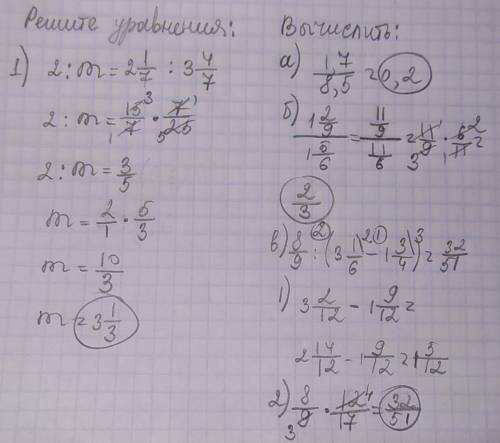 Решите уравнения:
1) 2 : m = 2 1/7 : 3 4/7
2 : m = 15/7 · 7/25
2 : m = 3/5
m = 2/1 · 5/3
m = 10/3
m = 3 1/3
Вычислить:
а) 1,7/8,5 = 0,2
б) 1 2/9 / 1 5/6 = 11/9 / 11/6 = 11/9 · 6/11 =
2/3
в) 8/9 : (3 1/6 - 1 3/4) = 32/51
1) 3 2/12 - 1 9/12 =
2 14/12 - 1 9/12 = 1 5/12
2) 8/9 · 12/17 = 32/51